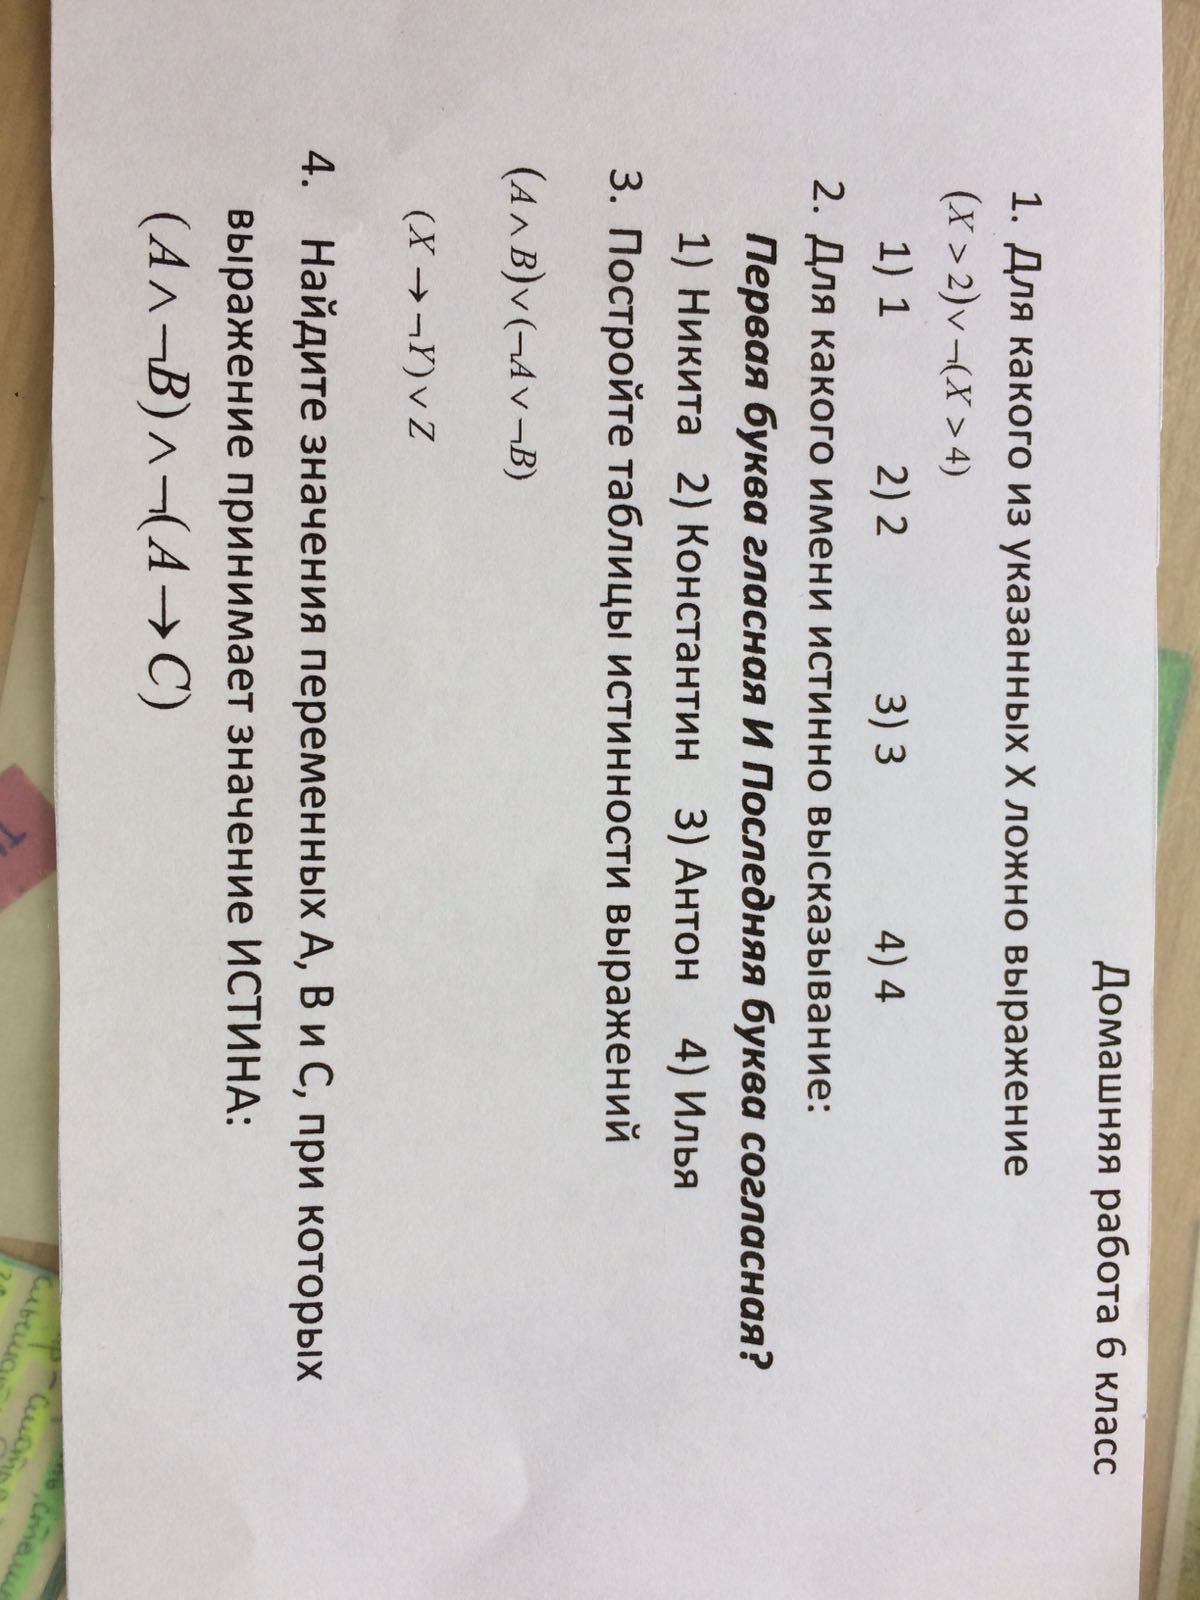 Домашняя работа 6 класс
1. Для какого из указанных X ложно выражение
(X > 2)∨¬(X > 4)
1) 1 2) 2 3) 3 4) 4
2. Для какого имени истинно высказывание:
Первая буква гласная И Последняя буква согласная?
1) Никита 2) Константин 3) Антон 4) Илья
3. Постройте таблицы истинности выражений
(A ∧ B)∨(¬A∨¬B)
(X → ¬Y)∨Z
4. Найдите значения переменных А, В и С, при которых
выражение принимает значение ИСТИНА:
(A ∧ ¬B) ∧ ¬(A → C)